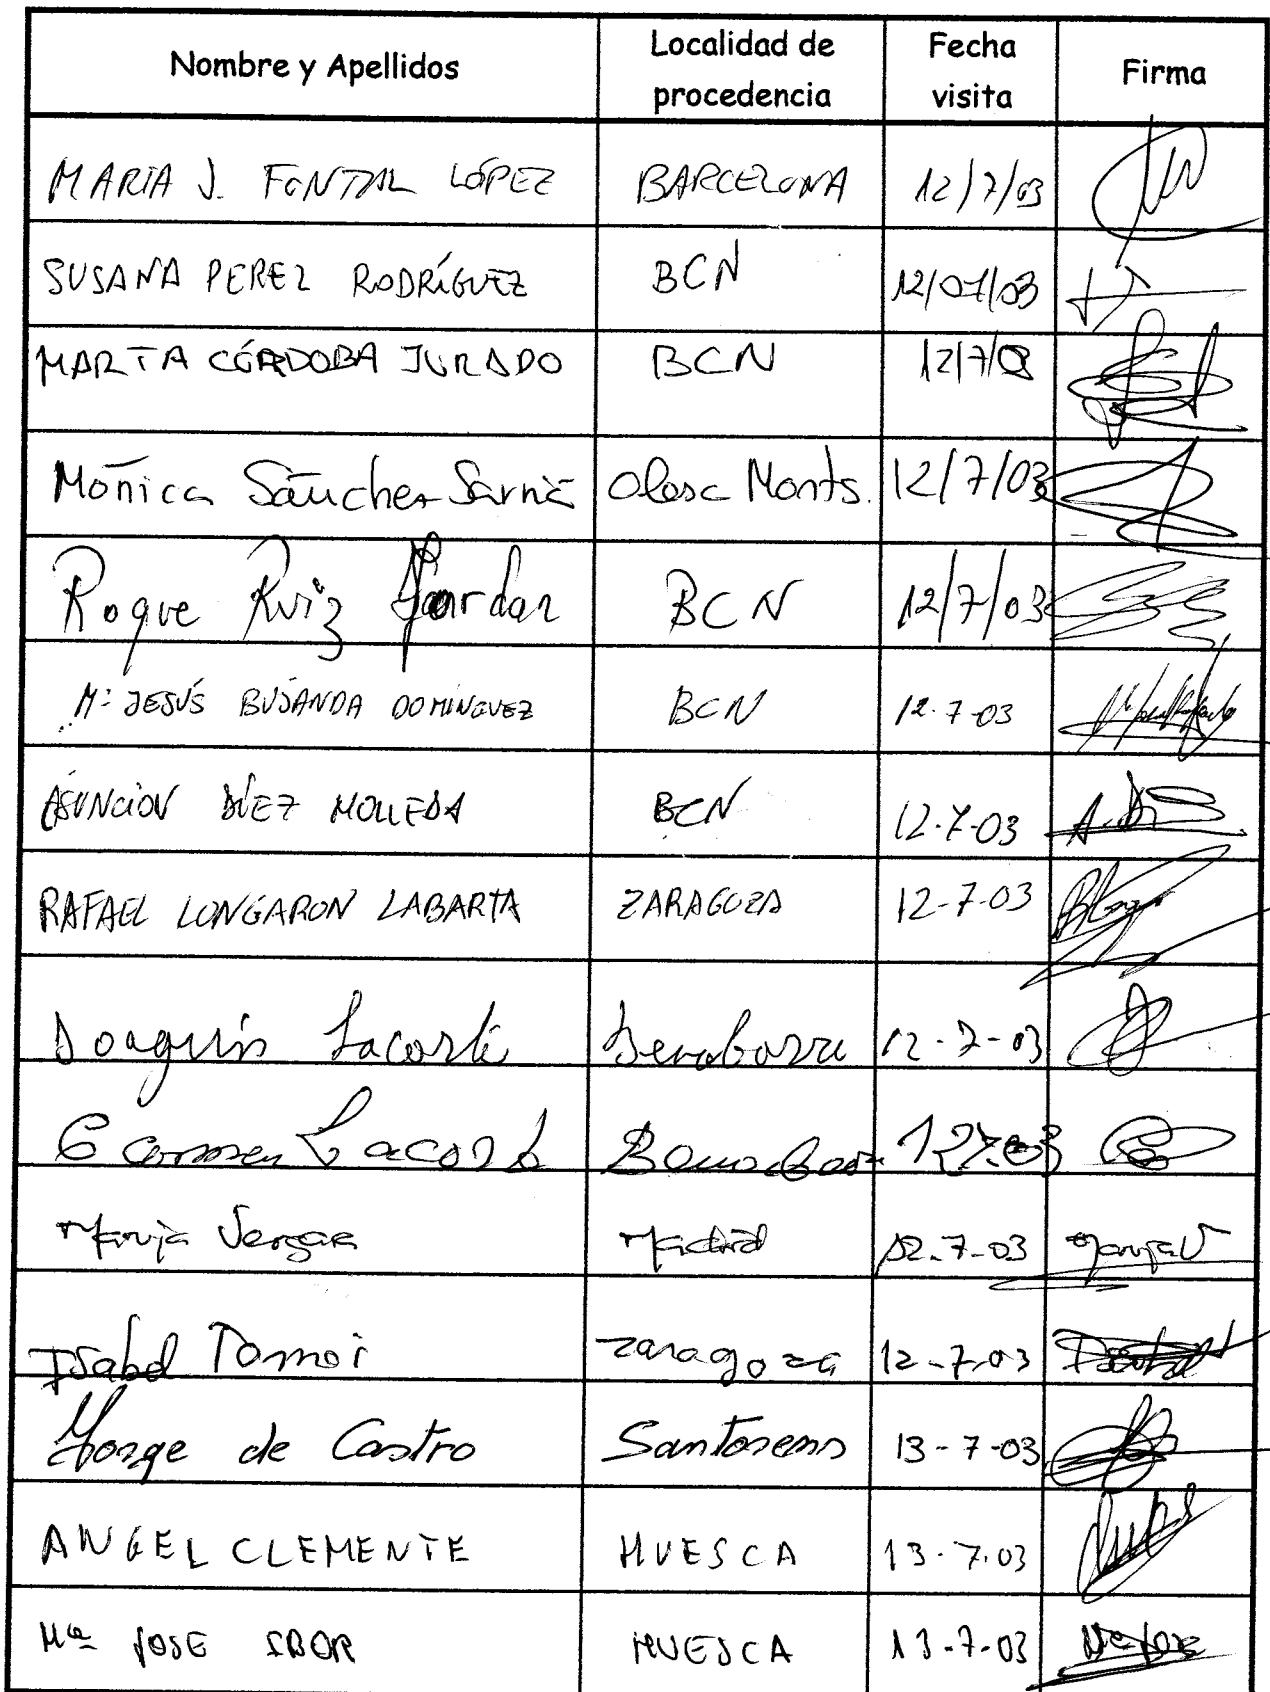 Nombre y Apellidos Localidad de procedencia Fecha visita Firma
MARIA J. FONTAL LÓPEZ BARCELONA 12/7/03
SUSANA PEREZ RODRÍGUEZ BCN 12/07/03
MARTA CÓRDOBA JURADO BCN 12/7/03
Mónica Sánchez Sarrià Olesa Monts. 12/7/03
Roque Ruiz BCN 12/7/03
Mª JESÚS BUJANDA DOMINGUEZ BCN 12-7-03
ASUNCIÓN DÍEZ MOLLEDA BCN 12-7-03
RAFAEL LONGARON LABARTA ZARAGOZA 12-7-03
Joaquín Lacorte Benabarre 12-7-03
Carmen Lacort Benabarre 12.7.03
Maruja Vergara Madrid 12-7-03 Maruja V
Isabel Tomoi Zaragoza 12-7-03 Isabel
Jorge de Castro Santorens 13-7-03
ANGEL CLEMENTE HUESCA 13-7-03
Mª JOSE IBOR HUESCA 13-7-03 Mª José